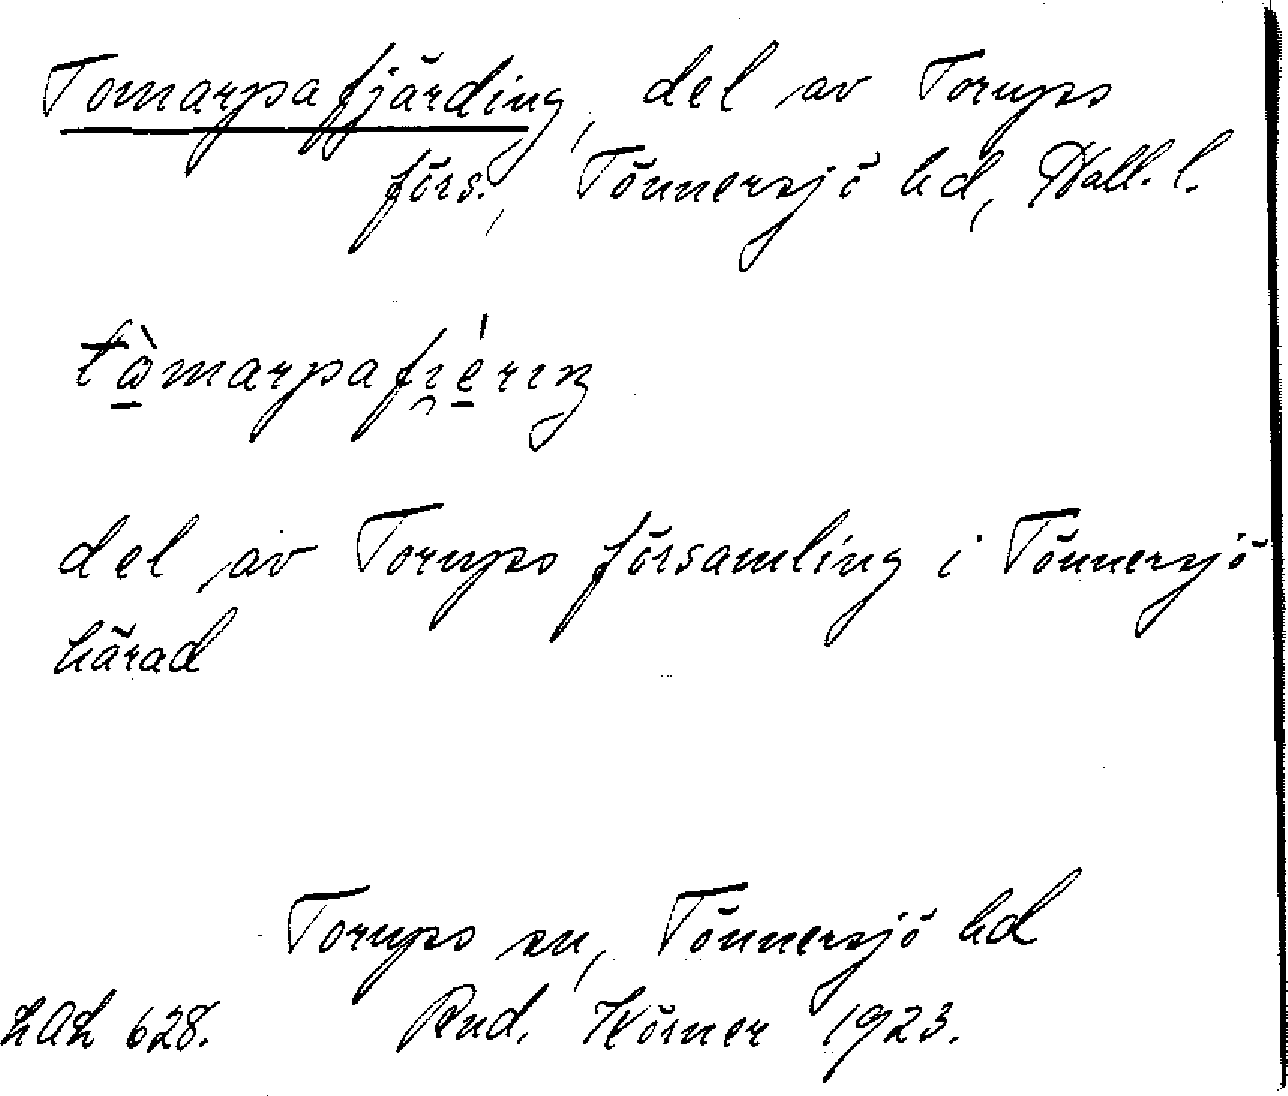 Tomarpafjärding, del av Torups
förs., Tönnersjö hd, Hall. l.
tὼ̱marpafi̯é̱rıŋ
del av Torups församling i Tönnersjö
härad
Torups sn, Tönnersjö hd
LAL 628. Rud. Körner 1923.